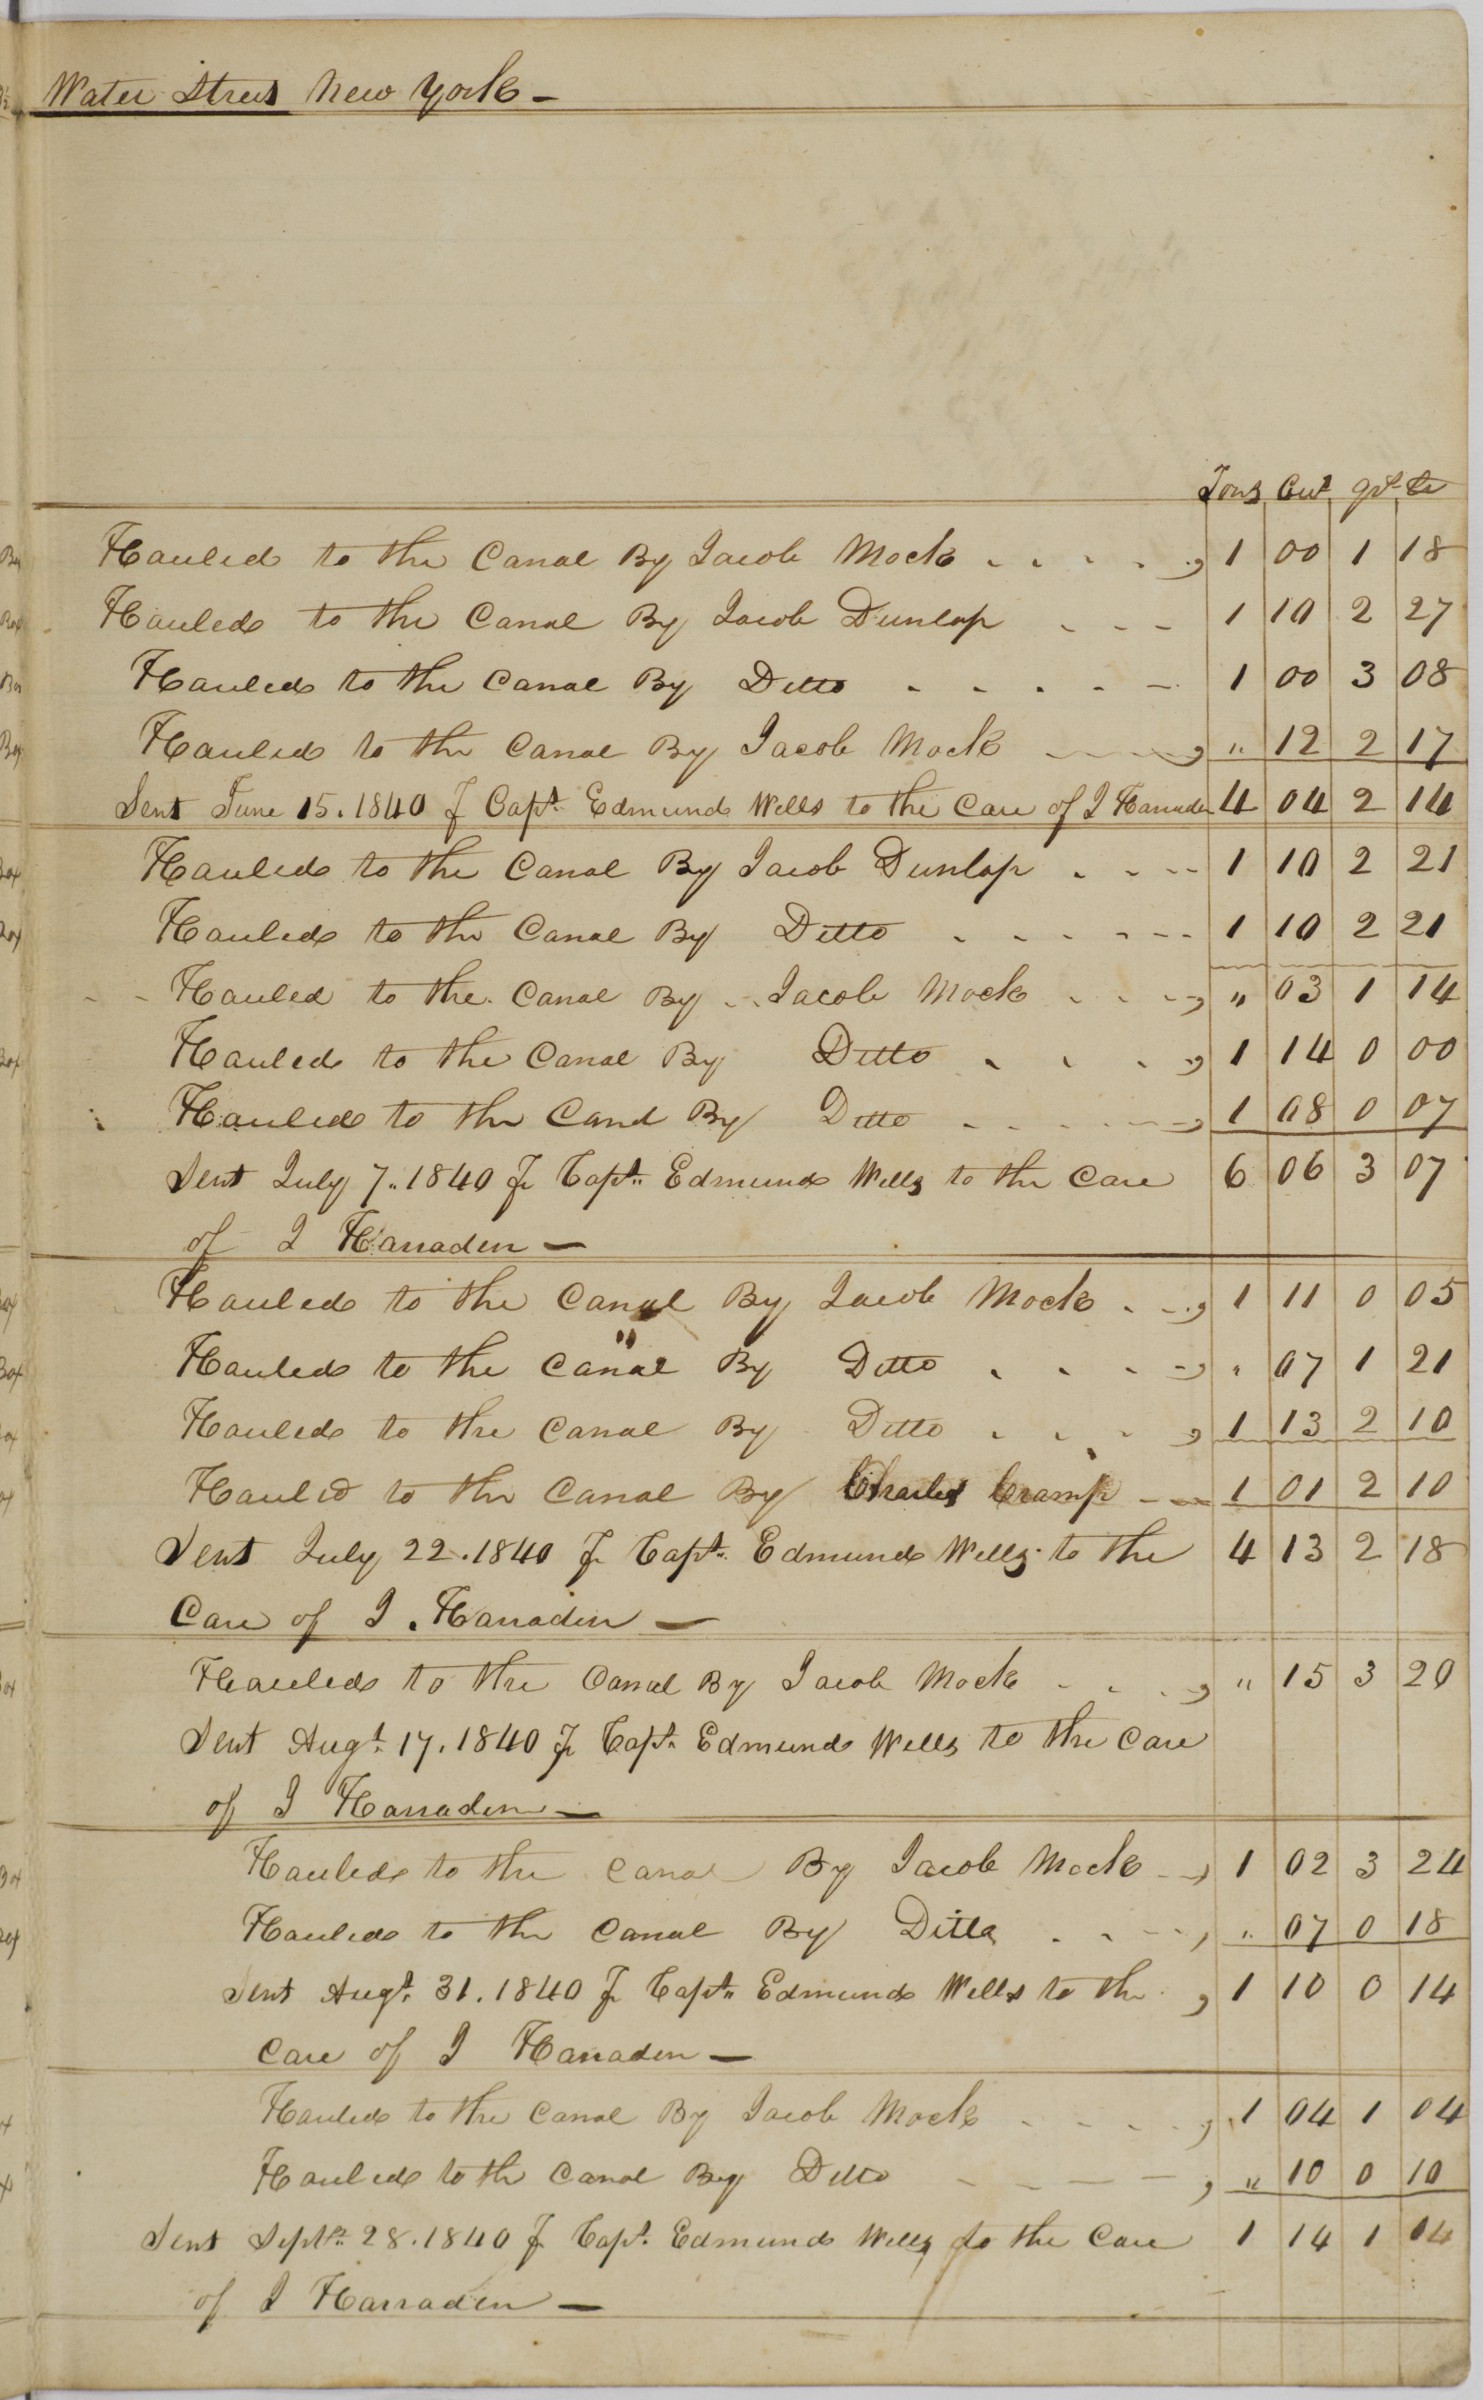 Water Street New York —
Tons Cwt qrt lb
Hauled to the Canal By Jacob Mock 1 00 1 18
Hauled to the Canal By Jacob Dunlap 1 10 2 27
Hauled to the Canal By Ditto 1 00 3 08
Hauled to the Canal By Jacob Mock " 12 2 17
Sent June 15. 1840 Capt. Edmund Wells to the Care of I Harraden 4 04 2 14
Hauled to the Canal By Jacob Dunlap 1 10 2 21
Hauled to the Canal By Ditto 1 10 2 21
Hauled to the Canal By Jacob Mock " 03 1 14
Hauled to the Canal By Ditto 1 14 0 00
Hauled to the Canal By Ditto 1 08 0 07
Sent July 7. 1840 Capt. Edmund Wells to the Care 6 06 3 07
of I Harraden —
Hauled to the Canal By Jacob Mock 1 11 0 05
Hauled to the Canal By Ditto " 07 1 21
Hauled to the Canal By Ditto 1 13 2 10
Hauled to the Canal By Charles Cramp 1 01 2 10
Sent July 22. 1840 Capt. Edmund Wells to the 4 13 2 18
Care of I. Harraden —
Hauled to the Canal By Jacob Mock " 15 3 20
Sent Augt. 17. 1840 Capt. Edmund Wells to the Care
of I Harraden —
Hauled to the Canal By Jacob Mock 1 02 3 24
Hauled to the Canal By Ditto " 07 0 18
Sent Augt. 31. 1840 Capt. Edmund Wells to the 1 10 0 14
Care of I Harraden —
Hauled to the Canal By Jacob Mock 1 04 1 04
Hauled to the Canal By Ditto " 10 0 10
Sent Septr. 28. 1840 Capt. Edmund Wells to the Care 1 14 1 14
of I Harraden —